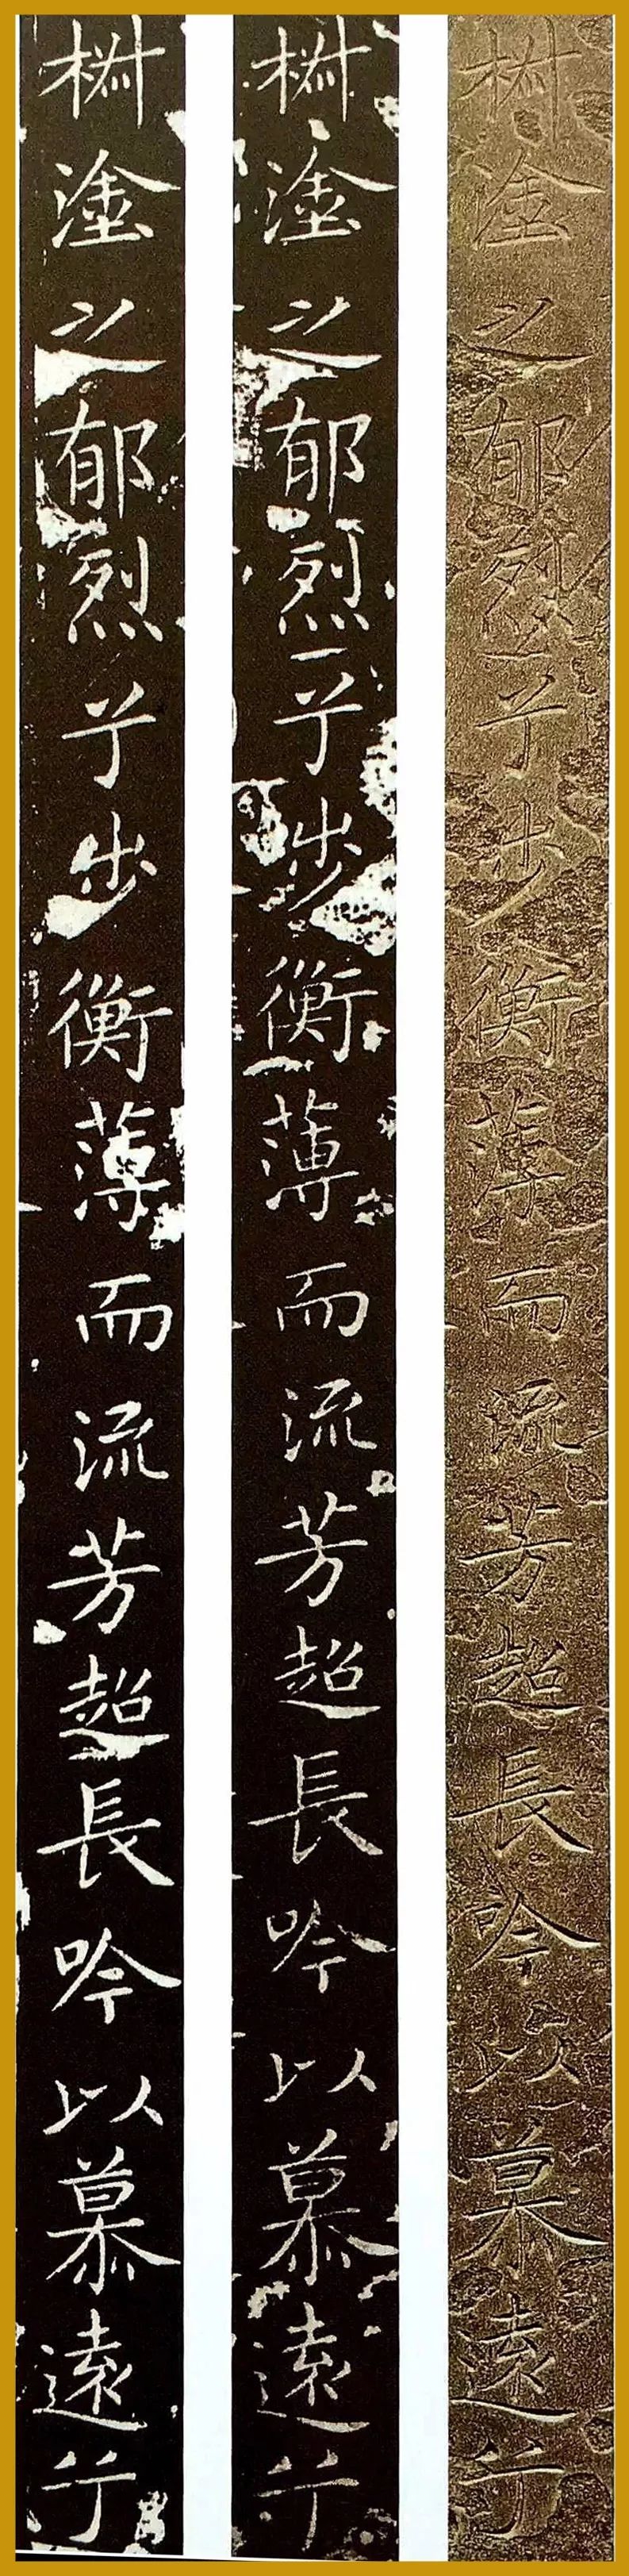 椒塗之郁烈兮步衡薄而流芳超長吟以慕遠兮
椒塗之郁烈兮步衡薄而流芳超長吟以慕遠兮
椒塗之郁烈兮步衡薄而流芳超長吟以慕遠兮